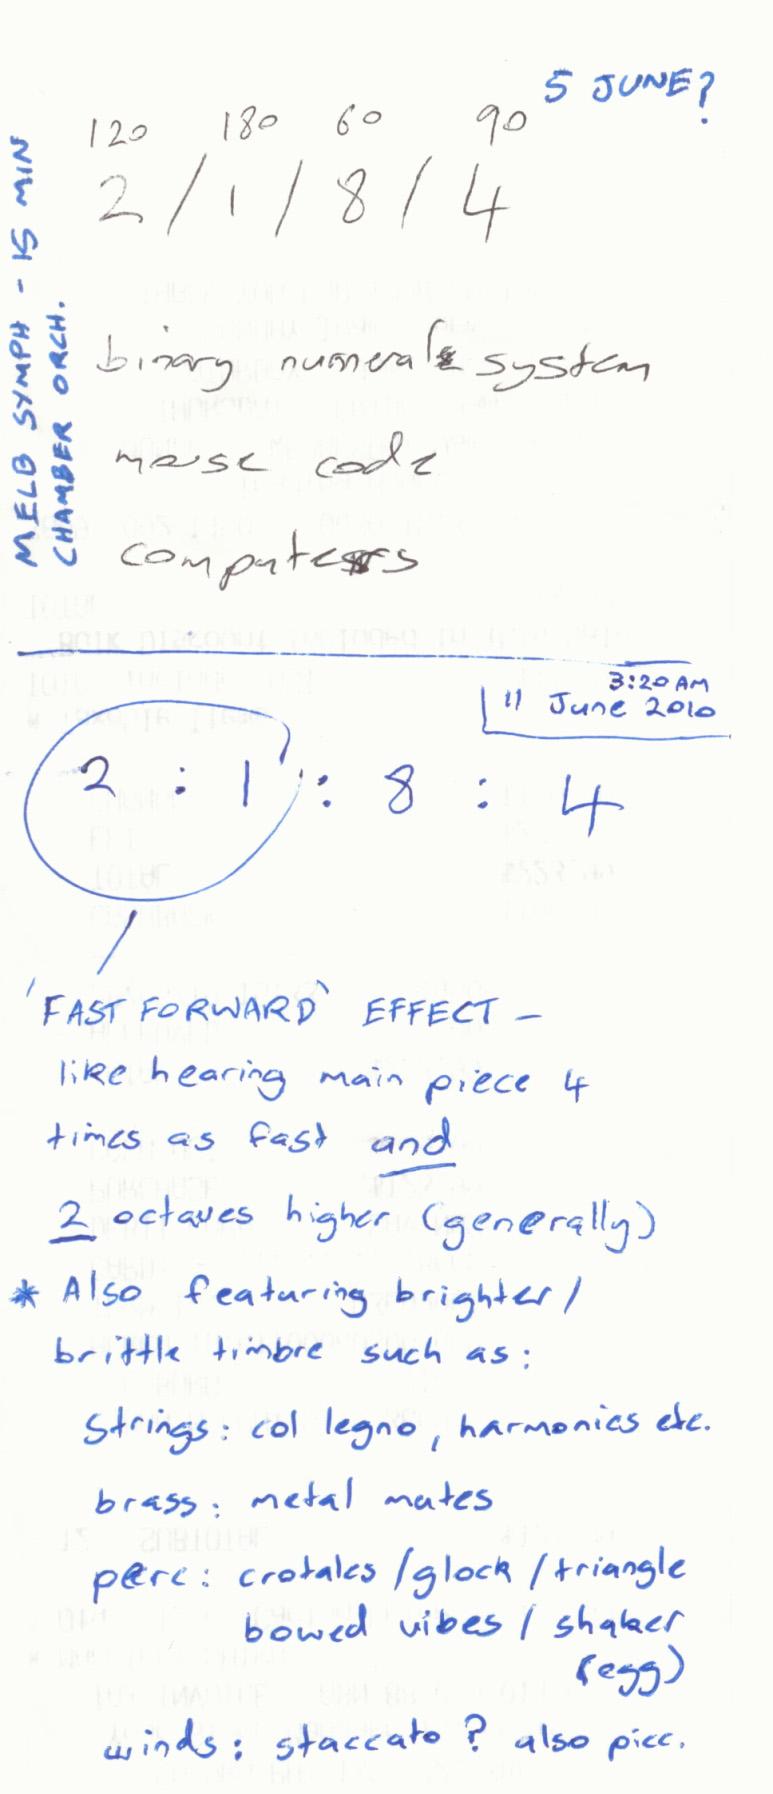 5 JUNE?
120 180 60 90
2 / 1 / 8 / 4
MELB SYMPH - 15 MIN
CHAMBER ORCH.
binary numeral system
morse code
computers
3:20 AM
11 June 2010
2 : 1 : 8 : 4
'FAST FORWARD' EFFECT –
like hearing main piece 4
times as fast and
2 octaves higher (generally)
* Also featuring brighter/
brittle timbre such as:
Strings: col legno, harmonics etc.
brass: metal mutes
perc: crotales/glock/triangle
bowed vibes / shaker
(egg)
winds: staccato? also picc.